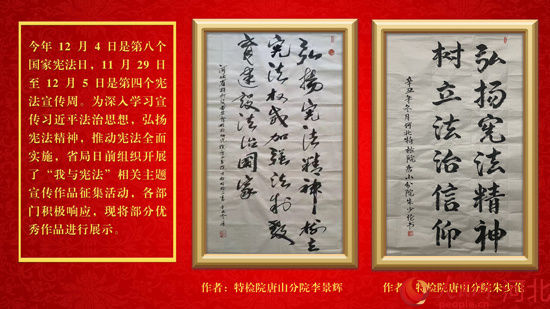 今年 12 月 4 日是第八个
国家宪法日，11 月 29 日
至 12 月 5 日是第四个宪
法宣传周。为深入学习宣
传习近平法治思想，弘扬
宪法精神，推动宪法全面
实施，省局日前组织开展
了“我与宪法”相关主题
宣传作品征集活动，各部
门积极响应，现将部分优
秀作品进行展示。
弘扬宪法精神树立
宪法权威加强法制教
育建设法治国家
作者：特检院唐山分院李景辉
弘扬宪法精神
树立法治信仰
辛丑年冬月河北特检院唐山分院朱少伦书
作者：特检院唐山分院朱少伦